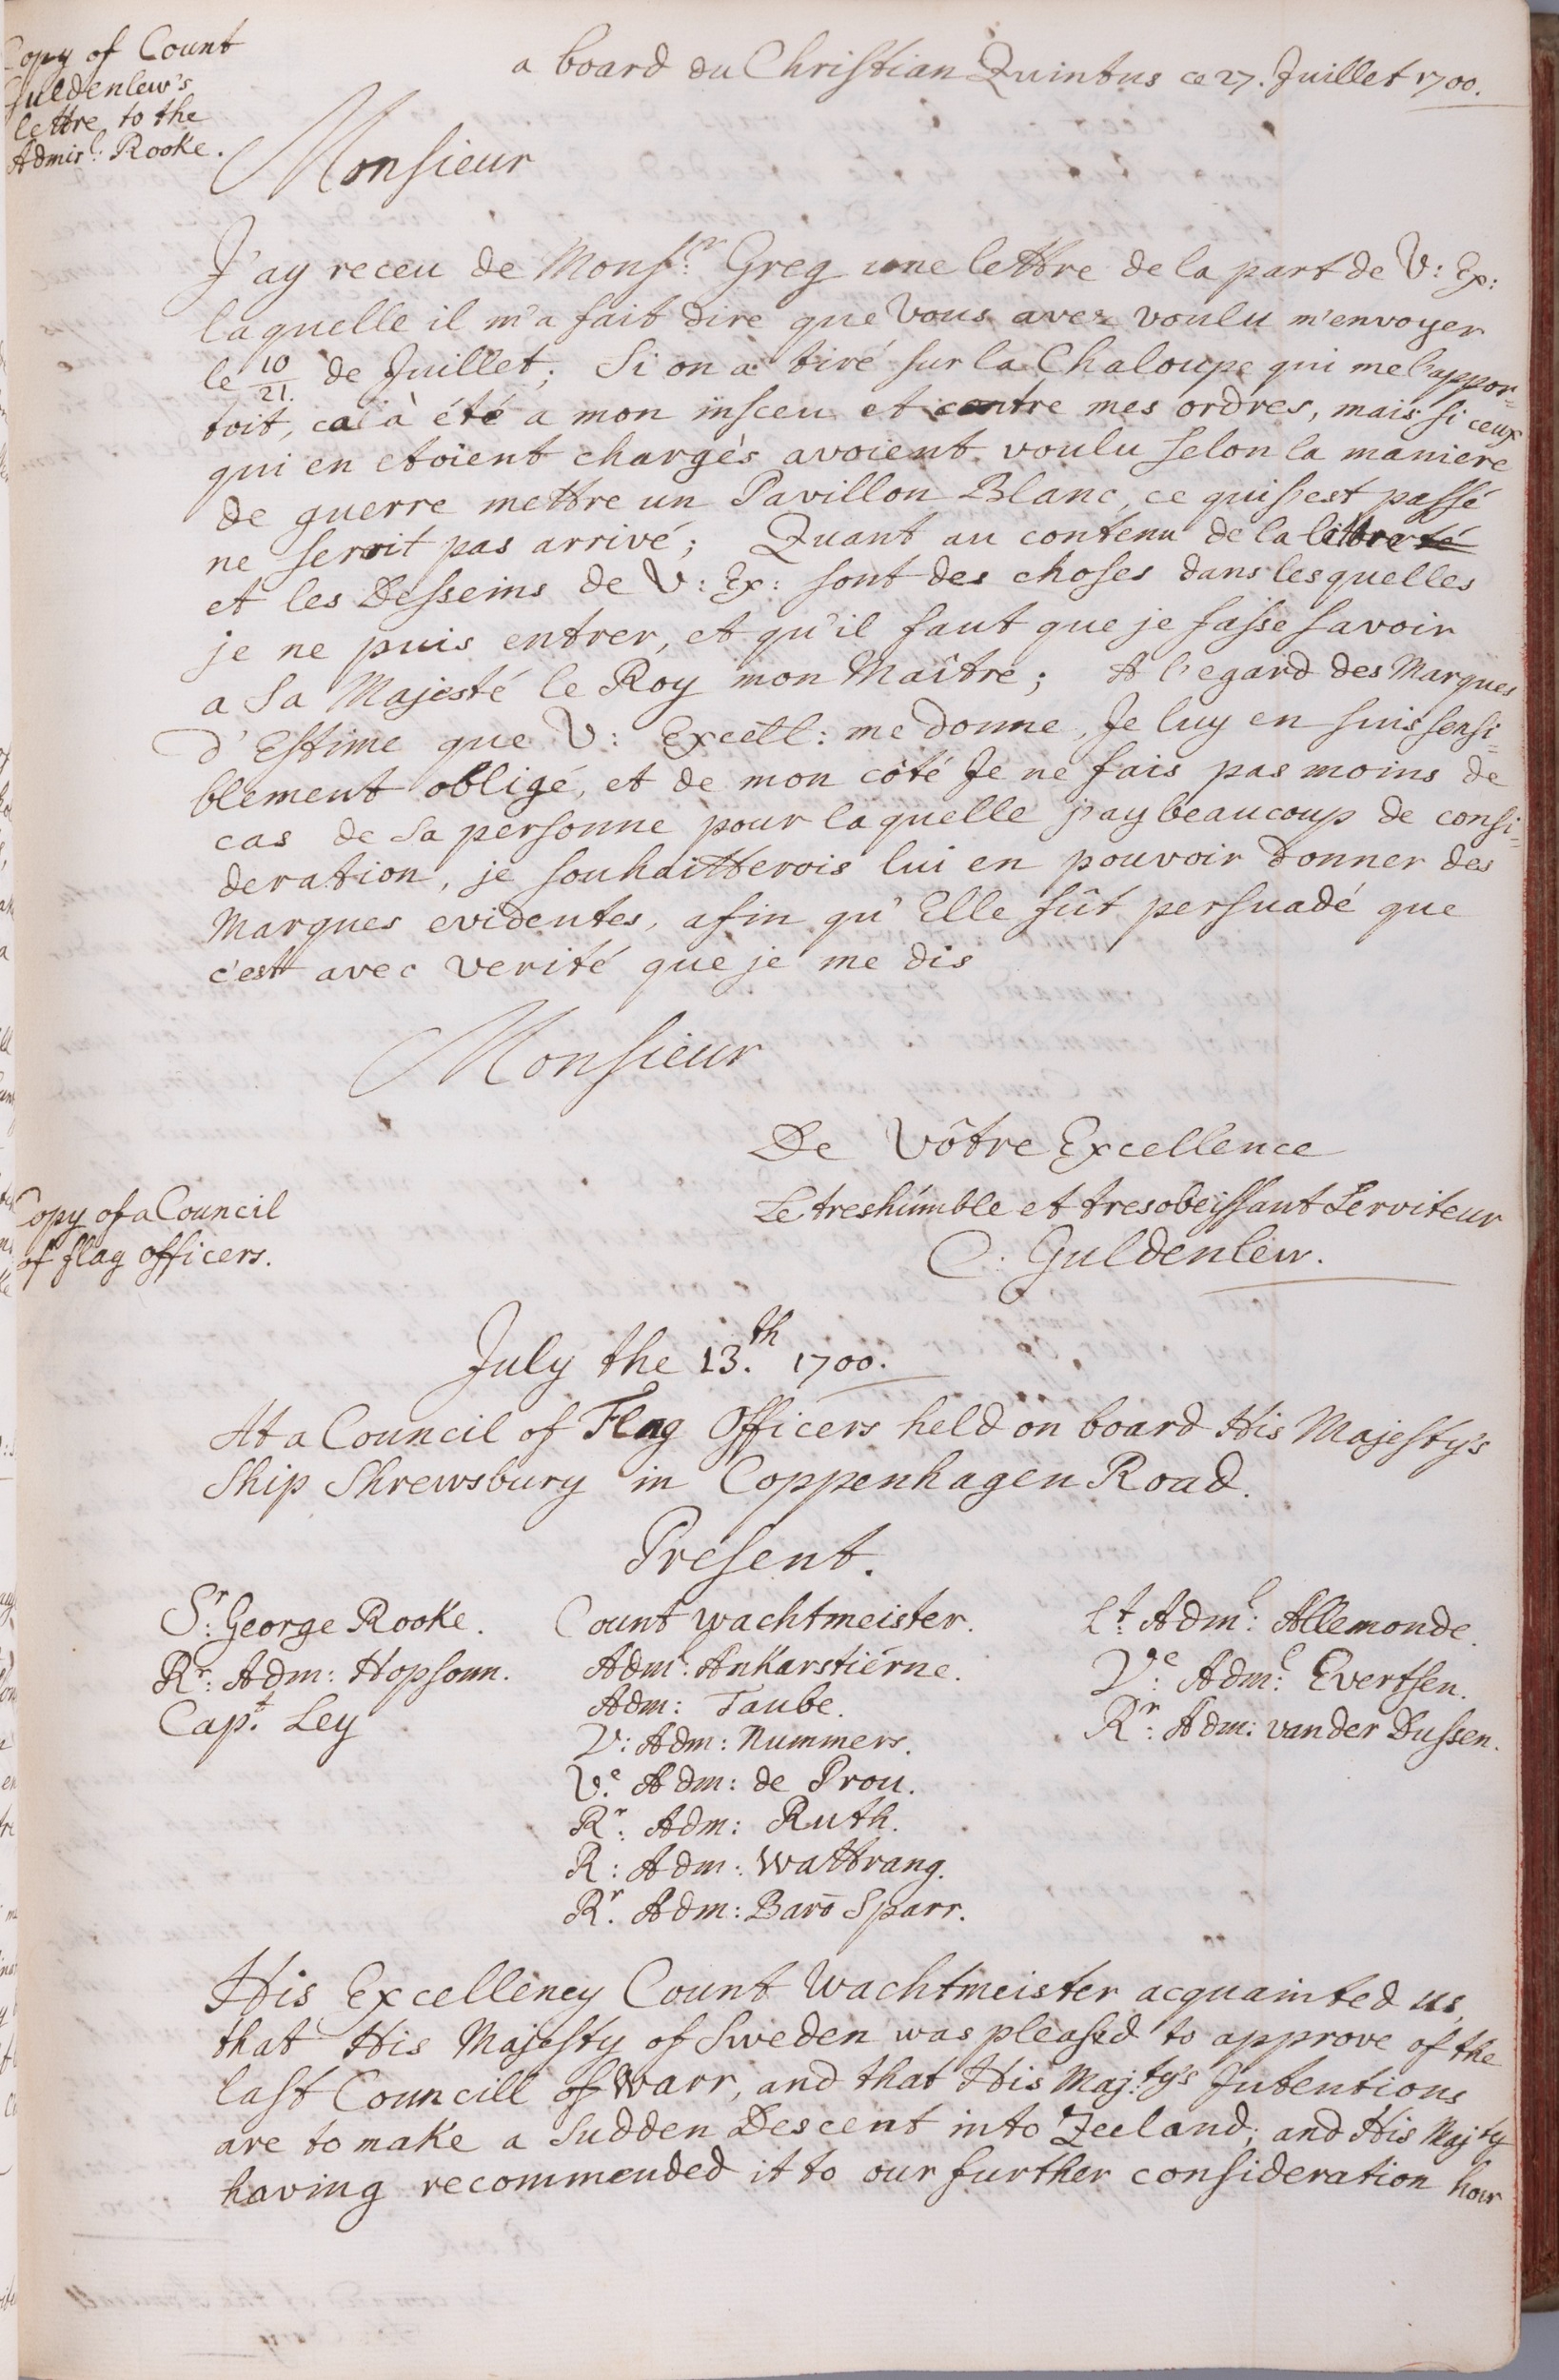 Copy of Count
Guldenlew's
lettre to the
Admirl: Rooke.
a board du Christian Quintus ce 27. Juillet 1700.
Monsieur
J'ay receu de Monsr: Greg une lettre de la part de V: Ex:
laquelle il m'a fait dire que Vous avez voulu m'envoyer
le 10/21. de Juillet; Si on a tiré sur la Chaloupe qui me l'appor=
toit, cala à été a mon insceu et contre mes ordres, mais si ceux
qui en etoient chargés avoient voulu selon la maniere
de guerre mettre un Pavillon Blanc, ce qui s'est passé
ne seroit pas arrivé; Quant au contenu de la lettre
et les Desseins de V: Ex: sont des choses dans lesquelles
je ne puis entrer, et qu'il faut que je fasse savoir
a Sa Majesté le Roy mon Maître; A l'egard des Marques
d'Estime que V: Excell: me donne, Je luy en suis sensi=
blement obligé, et de mon côté Je ne fais pas moins de
cas de Sa personne pour laquelle j'ay beaucoup de consi=
deration, je souhaitterois lui en pouvoir donner des
Marques evidentes, afin qu'Elle fût persuadé que
c'est avec verité que je me dis
Monsieur
De Vôtre Excellence
Le treshumble et tresobeissant Serviteur
C: Guldenlew.
Copy of a Council
of flag officers.
July the 13.th 1700.
At a Council of Flag Officers held on board His Majesty's
Ship Shrewsbury in Coppenhagen Road.
Present.
Sr: George Rooke. Count Wachtmeister. Lt: Adml: Allemonde.
Rr: Adm: Hopsonn. Adml: Ankarstierne. Ve: Adml: Evertsen.
Capt: Ley Adm: Taube. Rr: Adm: van der Dussen.
V: Adm: Nummers.
Ve. Adm: de Prou.
Rr: Adm: Ruth.
R: Adm: Wattrang.
Rr. Adm: Barō Sparr.
His Excellency Count Wachtmeister acquainted us,
that His Majesty of Sweden was pleased to approve of the
last Councill of Warr, and that His Maj:ty's Intentions
are to make a sudden Descent into Zeeland; and His Maj:ty
having recommended it to our further consideration how